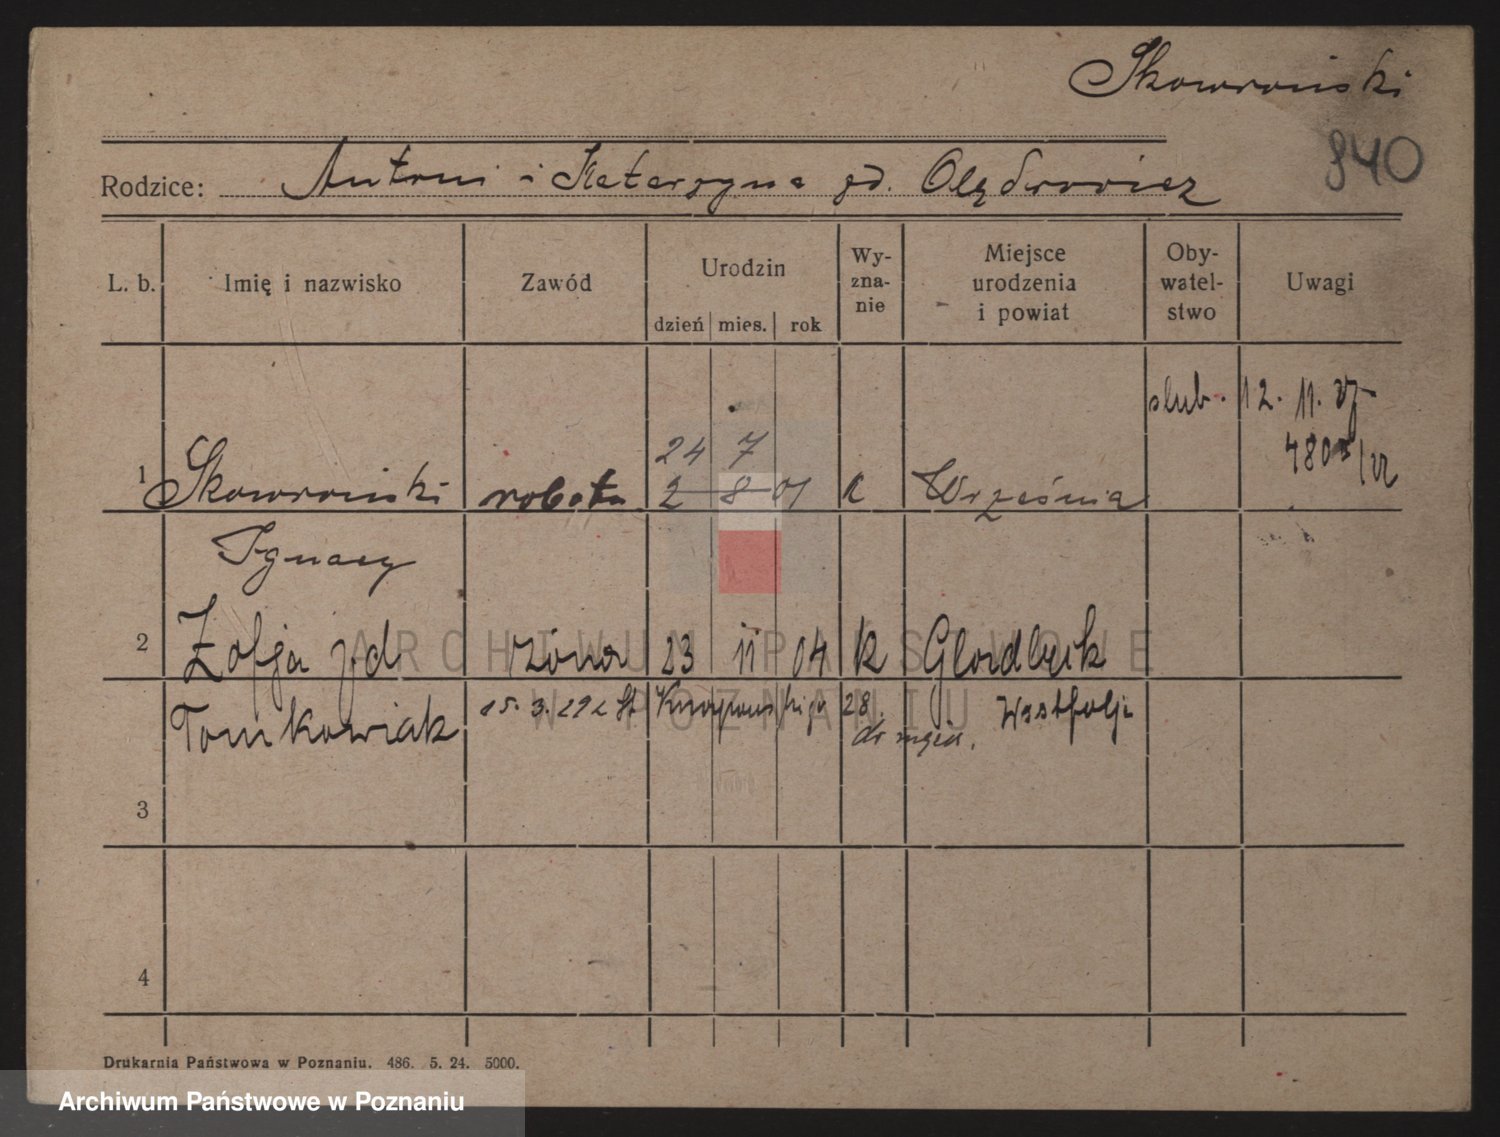 Skowroński
940
Rodzice: Antoni i Katarzyna zd.
L. b. Imię i nazwisko Zawód Urodzin Wyznanie Miejsce urodzenia i powiat Obywatelstwo Uwagi
dzień mies. rok
ślub. 12. 11. 27
24 7
1 Skowroński robotn. 2 8 01 k Września
Ignacy
2 Zofja zd żona 23 11 04 k Gladbeck
Tomkowiak 15. 3. 28. Westfalji
3
4
Drukarnia Państwowa w Poznaniu. 486. 5. 24. 5000.
ARCHIWUM PAŃSTWOWE
W POZNANIU
Archiwum Państwowe w Poznaniu